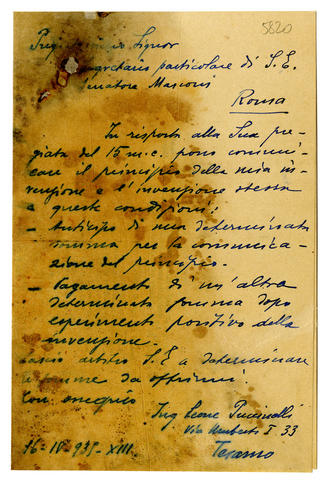 5820
Signor
particolare di S. E.
Senatore Marconi
Roma
In risposta alla Sua pre-
giata del 15 m.c. posso comuni-
care il principio della mia in-
venzione e l'invenzione stessa
a queste condizioni:
- Anticipo di una determinata
somma per la comunica-
zione del principio.
- Pagamento di un'altra
determinata somma dopo
esperimento positivo della
invenzione.
arbitro S. E. a determinare
le somme da offrirmi.
Con ossequio
Ing Leone
Via Umberto I 33
Teramo
16-IV-935-XIII